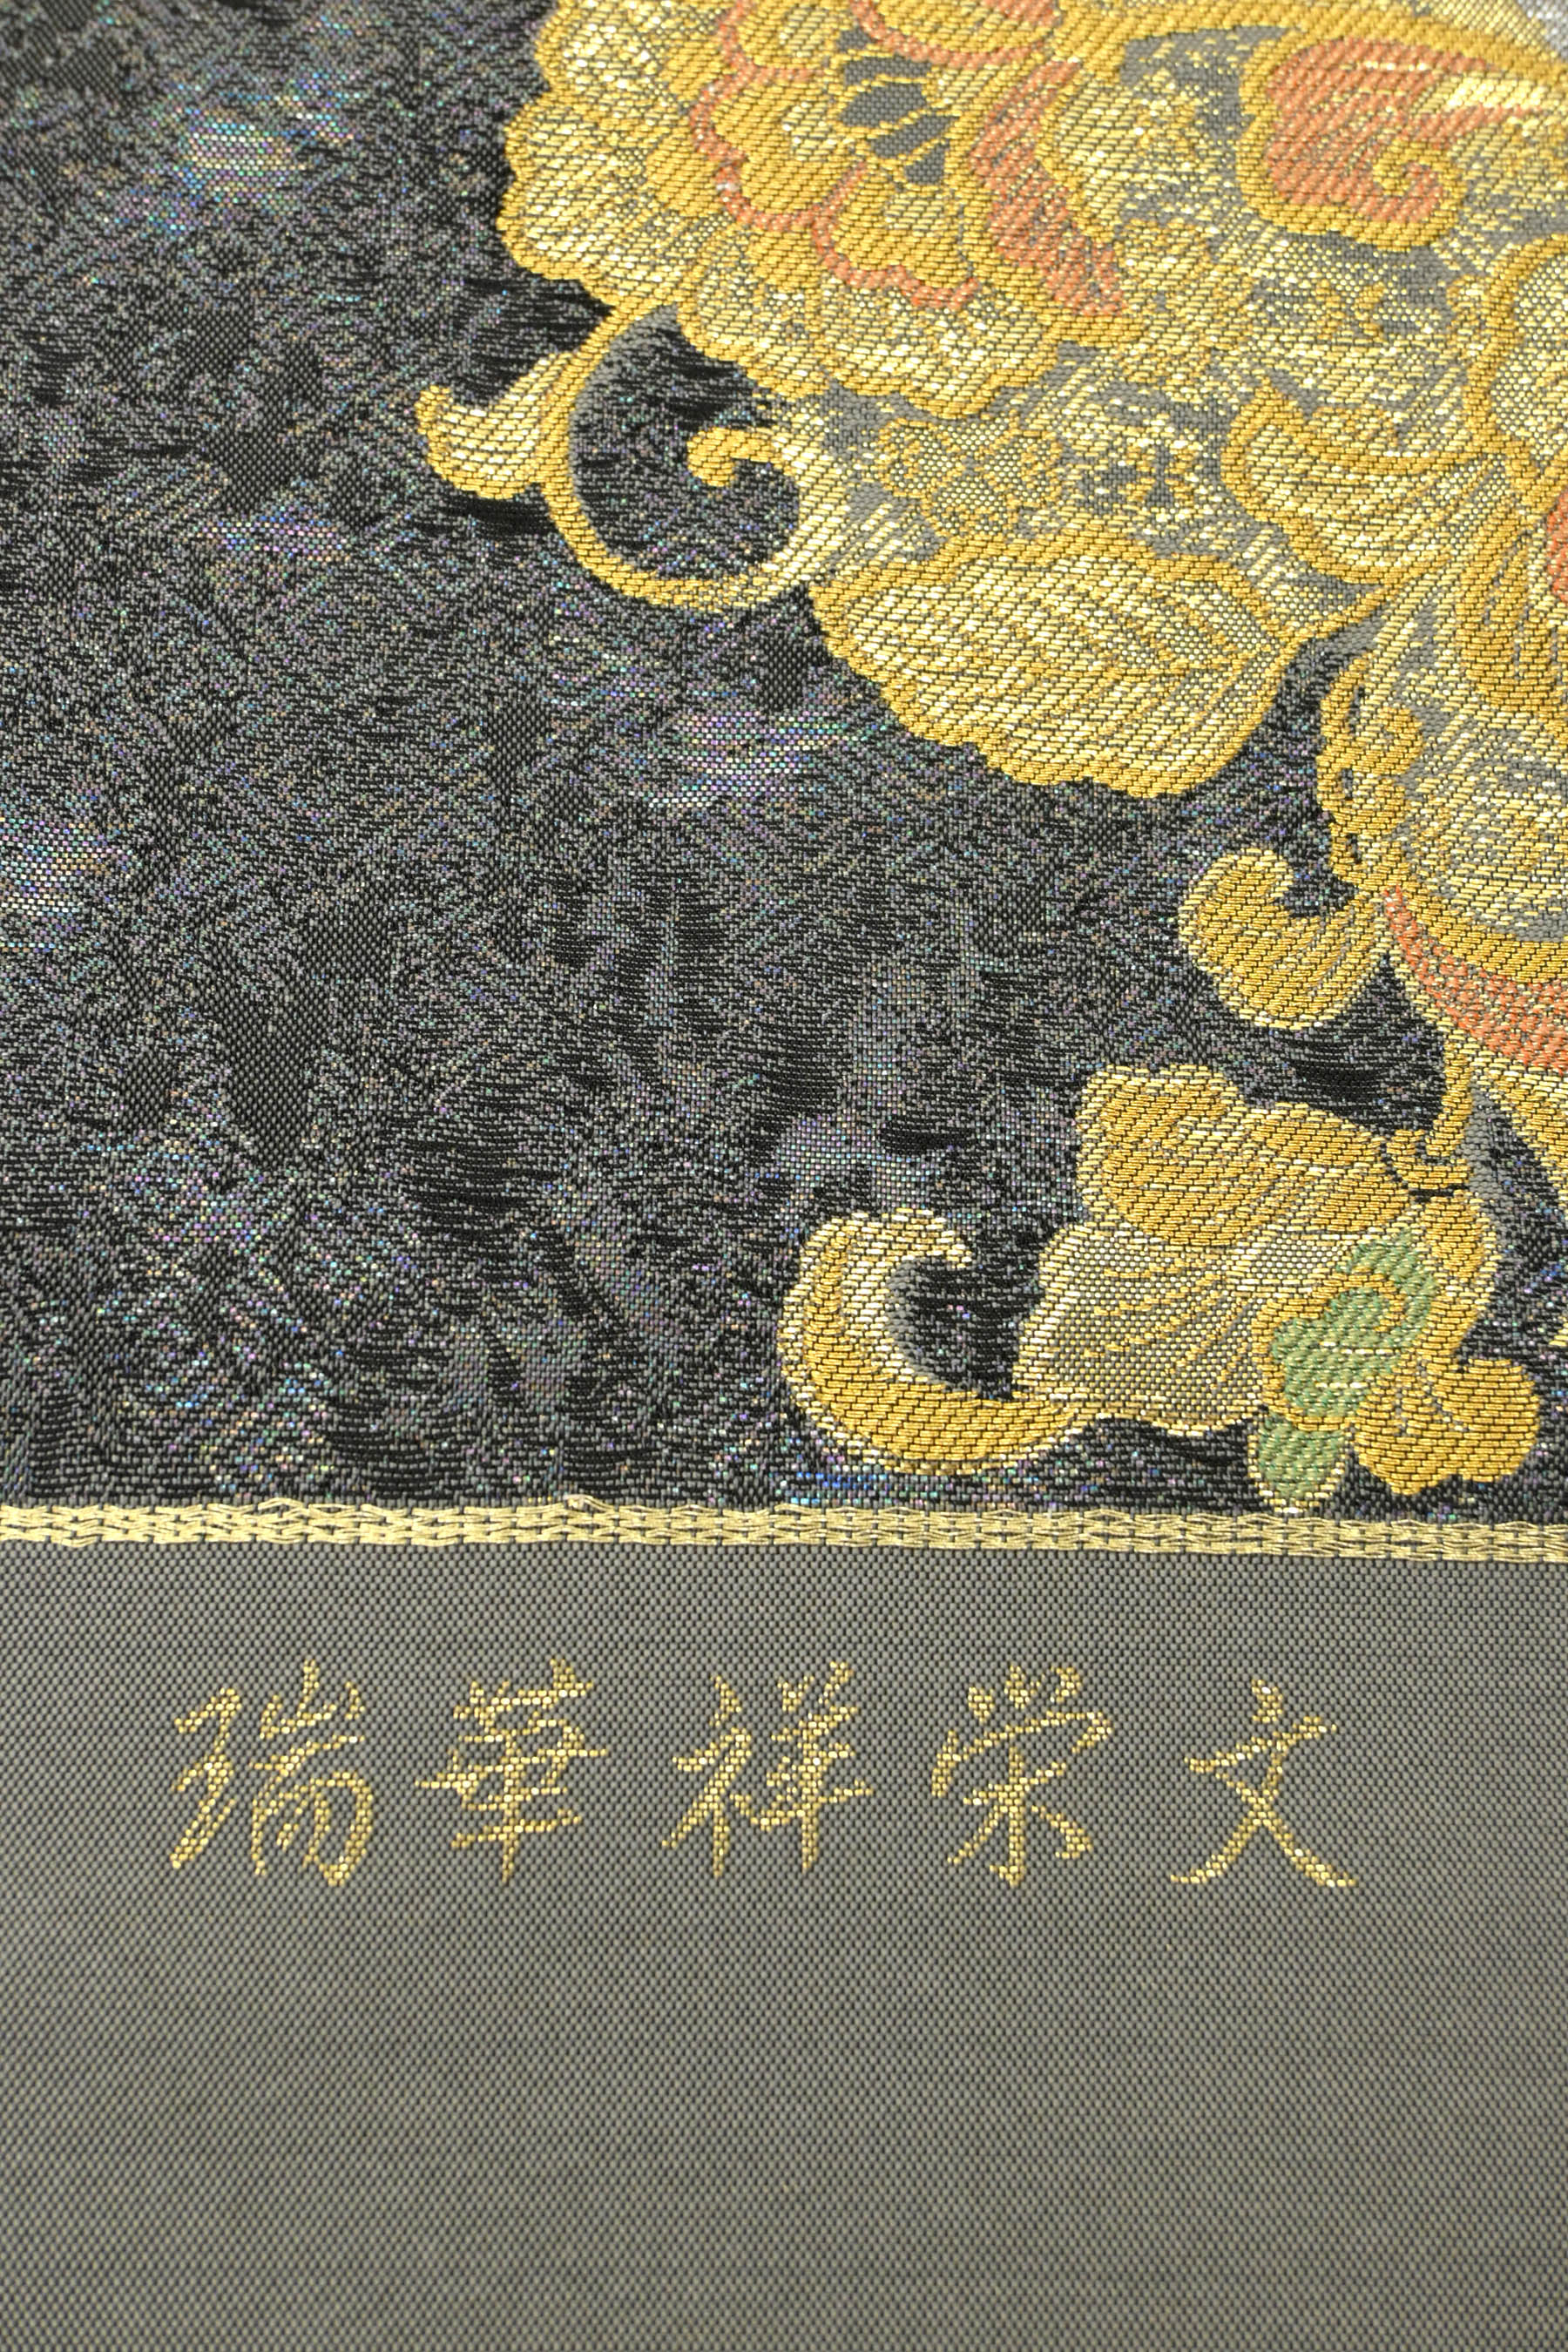 瑞華祥栄文